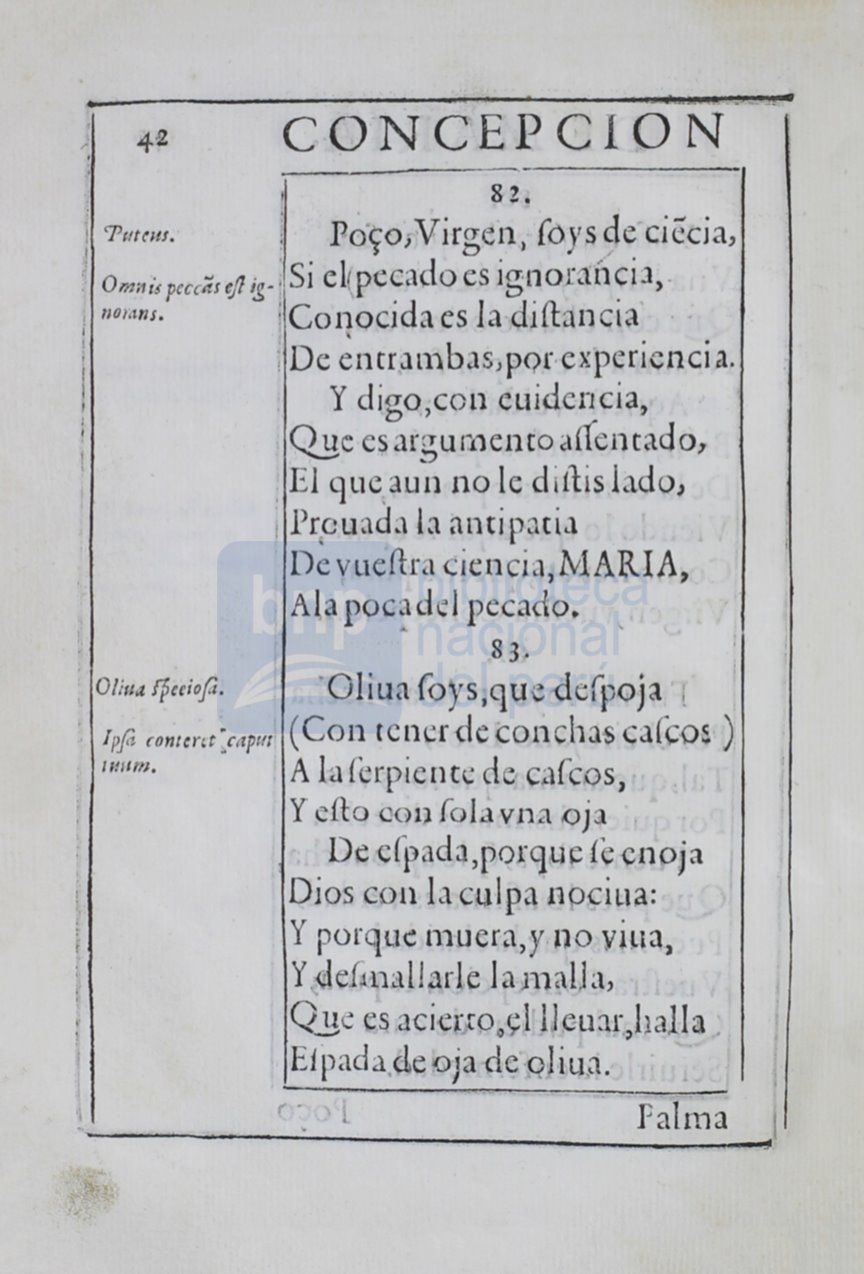 42 CONCEPCION
82.
Puteus.
Poço, Virgen, ſoys de ciẽcia,
Omnis peccãs eſt ig-
norans.
Si el pecado es ignorancia,
Conocida es la diſtancia
De entrambas, por experiencia.
Y digo, con euidencia,
Que es argumento aſſentado,
El que aun no le diſtis lado,
Prouada la antipatia
De vueſtra ciencia, MARIA,
A la poca del pecado.
83.
Oliua ſpecioſa.
Oliua ſoys, que deſpoja
Ipſa conteret caput
tuum.
(Con tener de conchas caſcos )
A la ſerpiente de caſcos,
Y eſto con ſola vna oja
De eſpada, porque ſe enoja
Dios con la culpa nociua:
Y porque muera, y no viua,
Y deſmallarle la malla,
Que es acierto, el lleuar, halla
Eſpada de oja de oliua.
Palma
bnp biblioteca
nacional
del perú